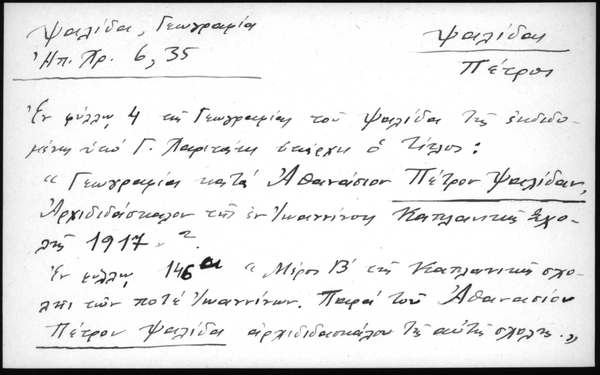 Ψαλίδα, Γεωγραφία
Ἠπ. Χρ. 6, 35
Ψαλίδας
Πέτρος
Ἐν φύλλῳ 4 τῆς Γεωγραφίας τοῦ Ψαλίδα τῆς ἐκδιδο-
μένης ὑπό Γ. Χαριτάκη ὑπάρχει ὁ τίτλος:
"Γεωγραφία κατά Ἀθανάσιον Πέτρον Ψαλίδαν,
Ἀρχιδιδάσκαλον τῆς ἐν Ἰωαννίνοις Καπλανικῆς Σχο-
λῆς 1917."
Ἐν φύλλῳ 146α "Μέρος Β' τῆς Καπλανικῆς σχο-
λῆς τῶν ποτέ Ἰωαννίνων. Παρά τοῦ Ἀθανασίου
Πέτρου Ψαλίδα ἀρχιδιδασκάλου τῆς αὐτῆς σχολῆς."